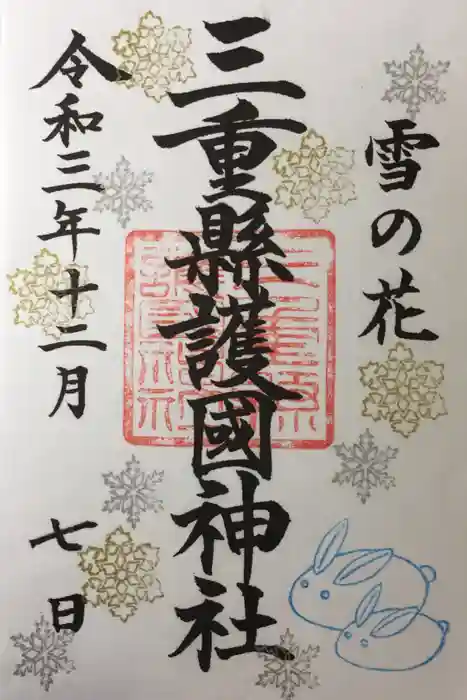 雪の花
三重縣護國神社
令和三年十二月七日